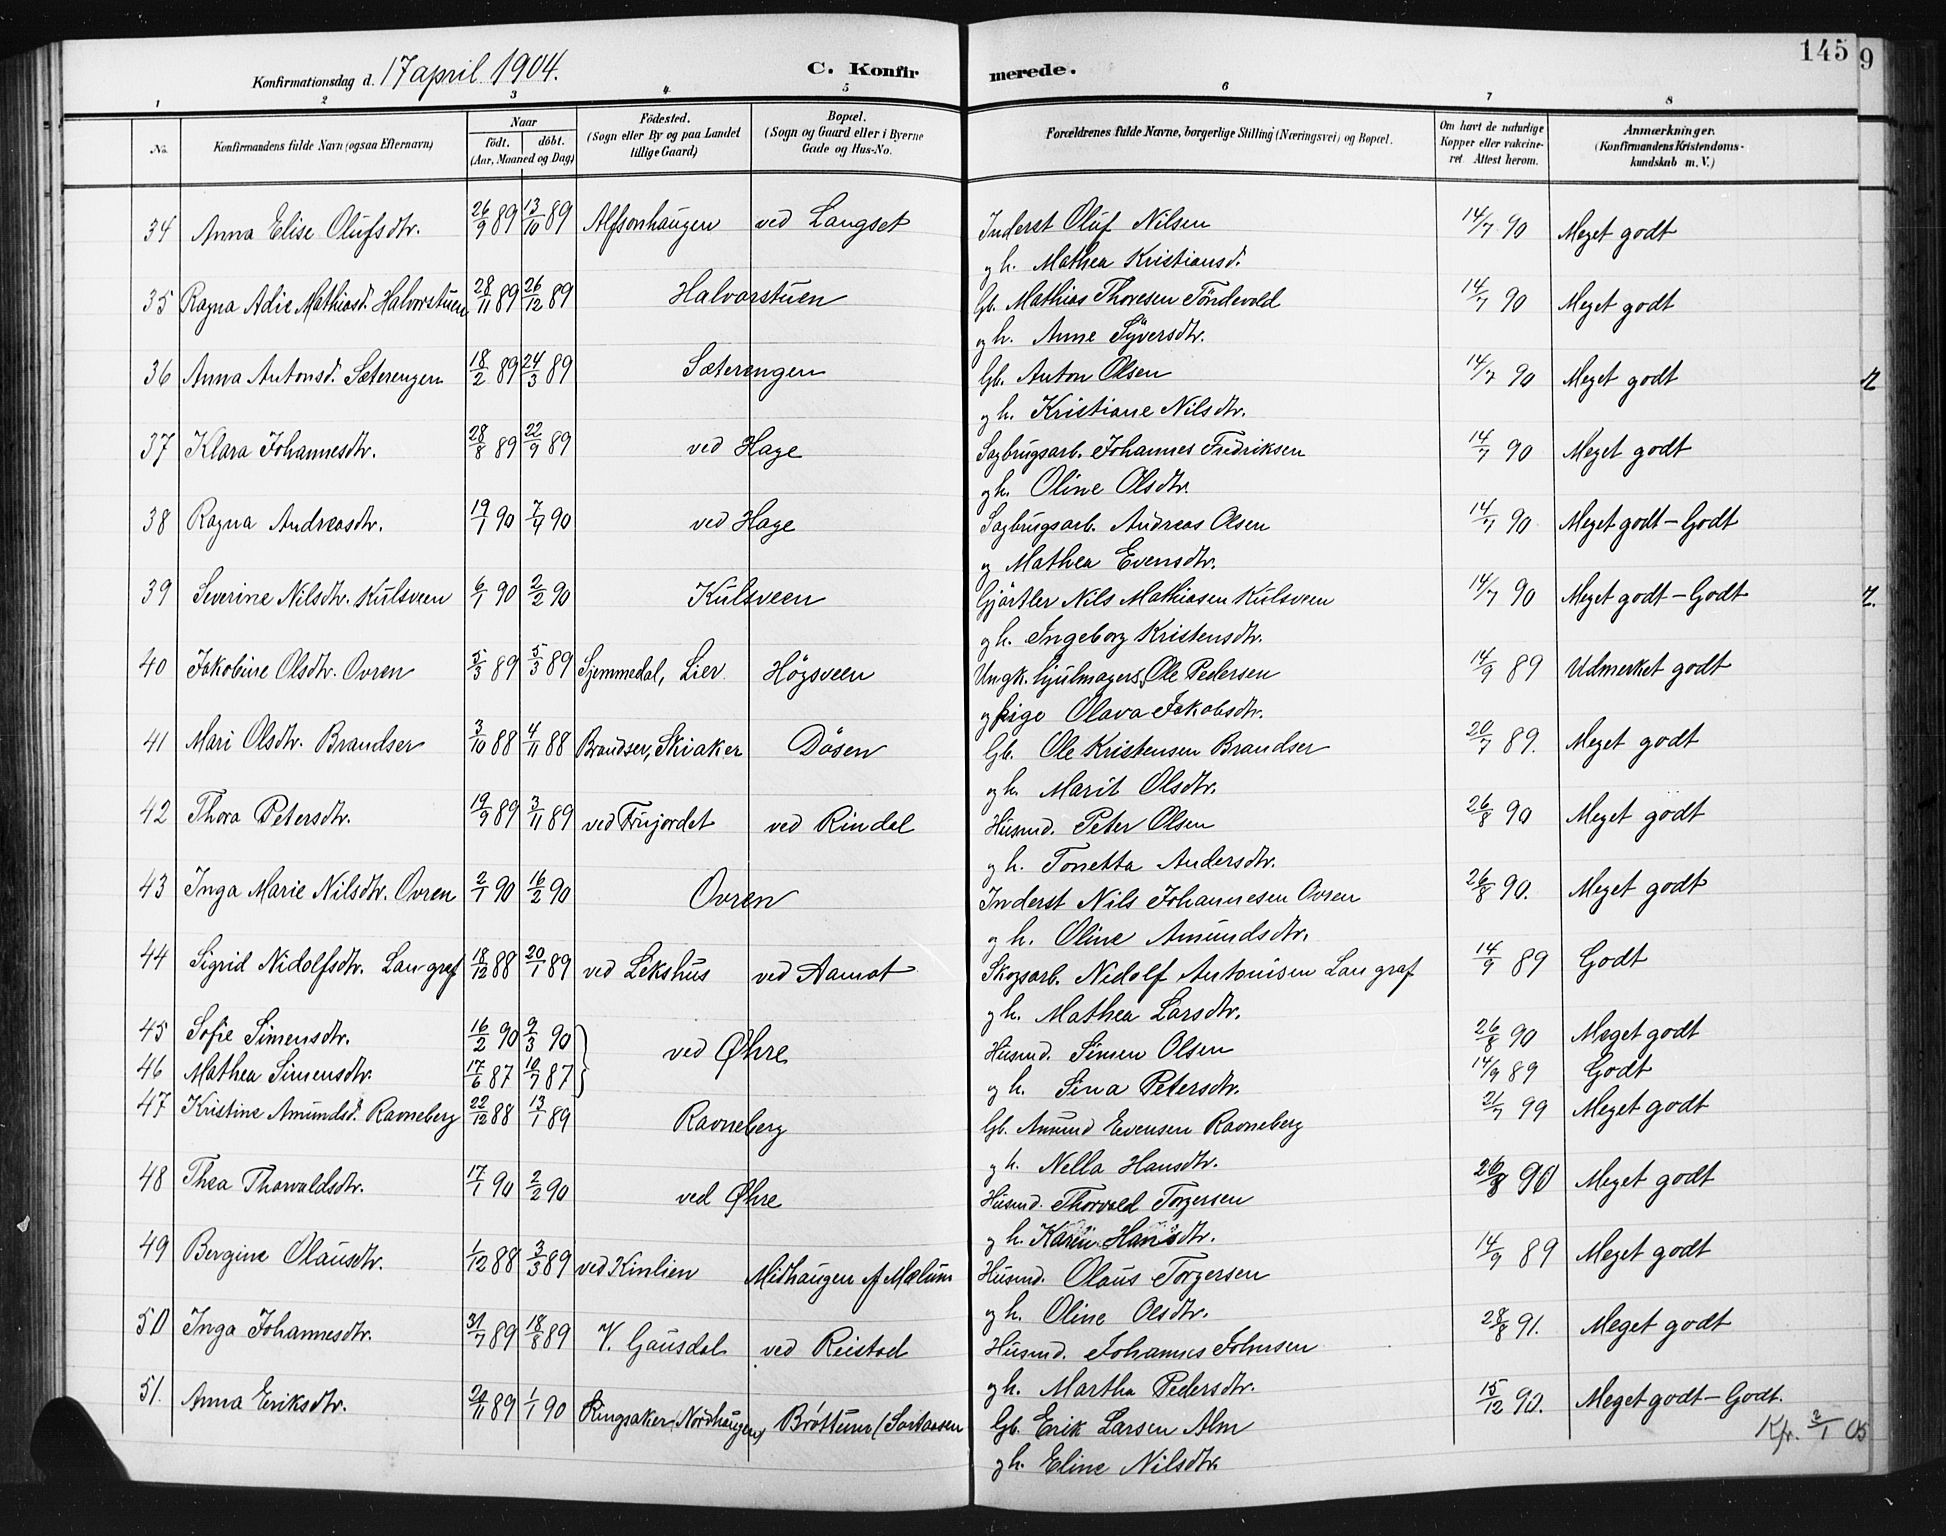 145
9
Konfirmationsdag d. 17 april 1904.
C. Konfirmerede.
1 2 3 4 5 6 7 8
No. Konfirmandens fulde Navn (ogsaa Efternavn) Naar født. døbt. (Aar, Maaned og Dag) Fødested. (Sogn eller By og paa Landet tillige Gaard) Bopæl. (Sogn og Gaard eller i Byerne Gade og Hus-No. Forældrenes fulde Navne, borgerlige Stilling (Næringsvei) og Bopæl. Om havt de naturlige Kopper eller vakcineret. Attest herom. Anmærkninger. (Konfirmandens Kristendomskundskab m. V.)
34 Anna Elise Olufsdtr. 26/9 89 13/10 89 Alfsonhaugen ved Langset Inderst Oluf Nilsen 14/7 90 Meget godt
og h. Mathea Kristiansd.
35 Ragna Adie Mathiasd. Halvorstuen 28/11 89 26/12 89 Halvorstuen Gb. Mathias Thoresen Töndevold 14/7 90 Meget godt
og h. Anne Syversdtr.
36 Anna Antonsd. Sæterengen 18/2 89 24/3 89 Sæterengen Gb. Anton Olsen 14/7 90 Meget godt
og h. Kristiane Nilsdtr.
37 Klara Johannesdtr. 28/8 89 22/9 89 ved Hage Sagbrugsarb. Johannes Fredriksen 14/7 90 Meget godt
og h. Oline Olsdtr.
38 Ragna Andreasdtr. 19/1 90 7/4 90 ved Hage Sagbrugsarb. Andreas Olsen 14/7 90 Meget godt - Godt
og Mathea Evensdtr.
39 Severine Nilsdtr. Kulsveen 6/1 90 2/2 90 Kulsveen Gjørtler Nils Mathiasen Kulsveen 14/7 90 Meget godt - Godt
og h. Ingeborg Kristensdtr.
40 Jakobine Olsdtr. Ovren 5/3 89 5/3 89 Sjemmedal, Lier Högsveen Ungk. hjulmagers. Ole Pedersen 14/9 89 Udmerket godt
og pige Olava Jakobsdtr.
41 Mari Olsdtr. Brandser 3/10 88 4/11 88 Brandser, Skiaker Dösen Gb. Ole Kristensen Brandser 20/7 89. Meget godt
og h. Marit Olsdtr.
42 Thora Petersdtr. 19/9 89 3/11 89 ved Frujordet ved Rindal Husmd. Peter Olsen 26/8 90 Meget godt
og h. Tonetta Andersdtr.
43 Inga Marie Nilsdtr. Ovren 2/1 90 16/2 90 Ovren Inderst Nils Johannesen Ovren 26/8 90. Meget godt
og h. Oline Amundsdtr.
44 Sigrid Nidolfsdtr. Langraf 18/12 88 20/1 89 ved Lekshus ved Aamot Skogsarb. Nidolf Antonisen Langraf 14/9 89 Godt
og h. Mathea Larsdtr.
45 Sofie Simensdtr. 16/2 90 9/3 90 ved Øhre Husmd. Simen Olsen 26/8 90 Meget godt
46 Mathea Simensdtr. 17/6 87 10/7 87 og h. Sina Petersdtr. 14/9 89 Godt
47 Kristine Amundsd. Ravneberg 22/12 88 13/1 89 Ravneberg Gb. Amund Evensen Ravneberg 21/7 99 Meget godt
og h. Nella Hansdtr.
48 Thea Thorvaldsdtr. 17/1 90 2/2 90 ved Øhre Husmd. Thorvald Torgersen 26/8 90 Meget godt
og h. Karen Hansdtr.
49 Bergine Olausdtr. 1/12 88 3/3 89 ved Kinlien Midhaugen af Mælum Husmd. Olaus Torgersen 14/9 89 Meget godt
og h. Oline Olsdtr.
50 Inga Johannesdtr. 31/7 89 18/8 89 V. Gausdal ved Reistad Husmd. Johannes Johnsen 28/8 91. Meget godt
og h. Martha Pedersdtr.
51. Anna Eriksdtr. 29/11 89 1/1 90 Ringsaker (Nordhaugen) Brøttum Gb. Erik Larsen Alm 15/12 90. Meget godt - Godt.
og h. Eline Nilsdtr. Kfr. 2/1 05